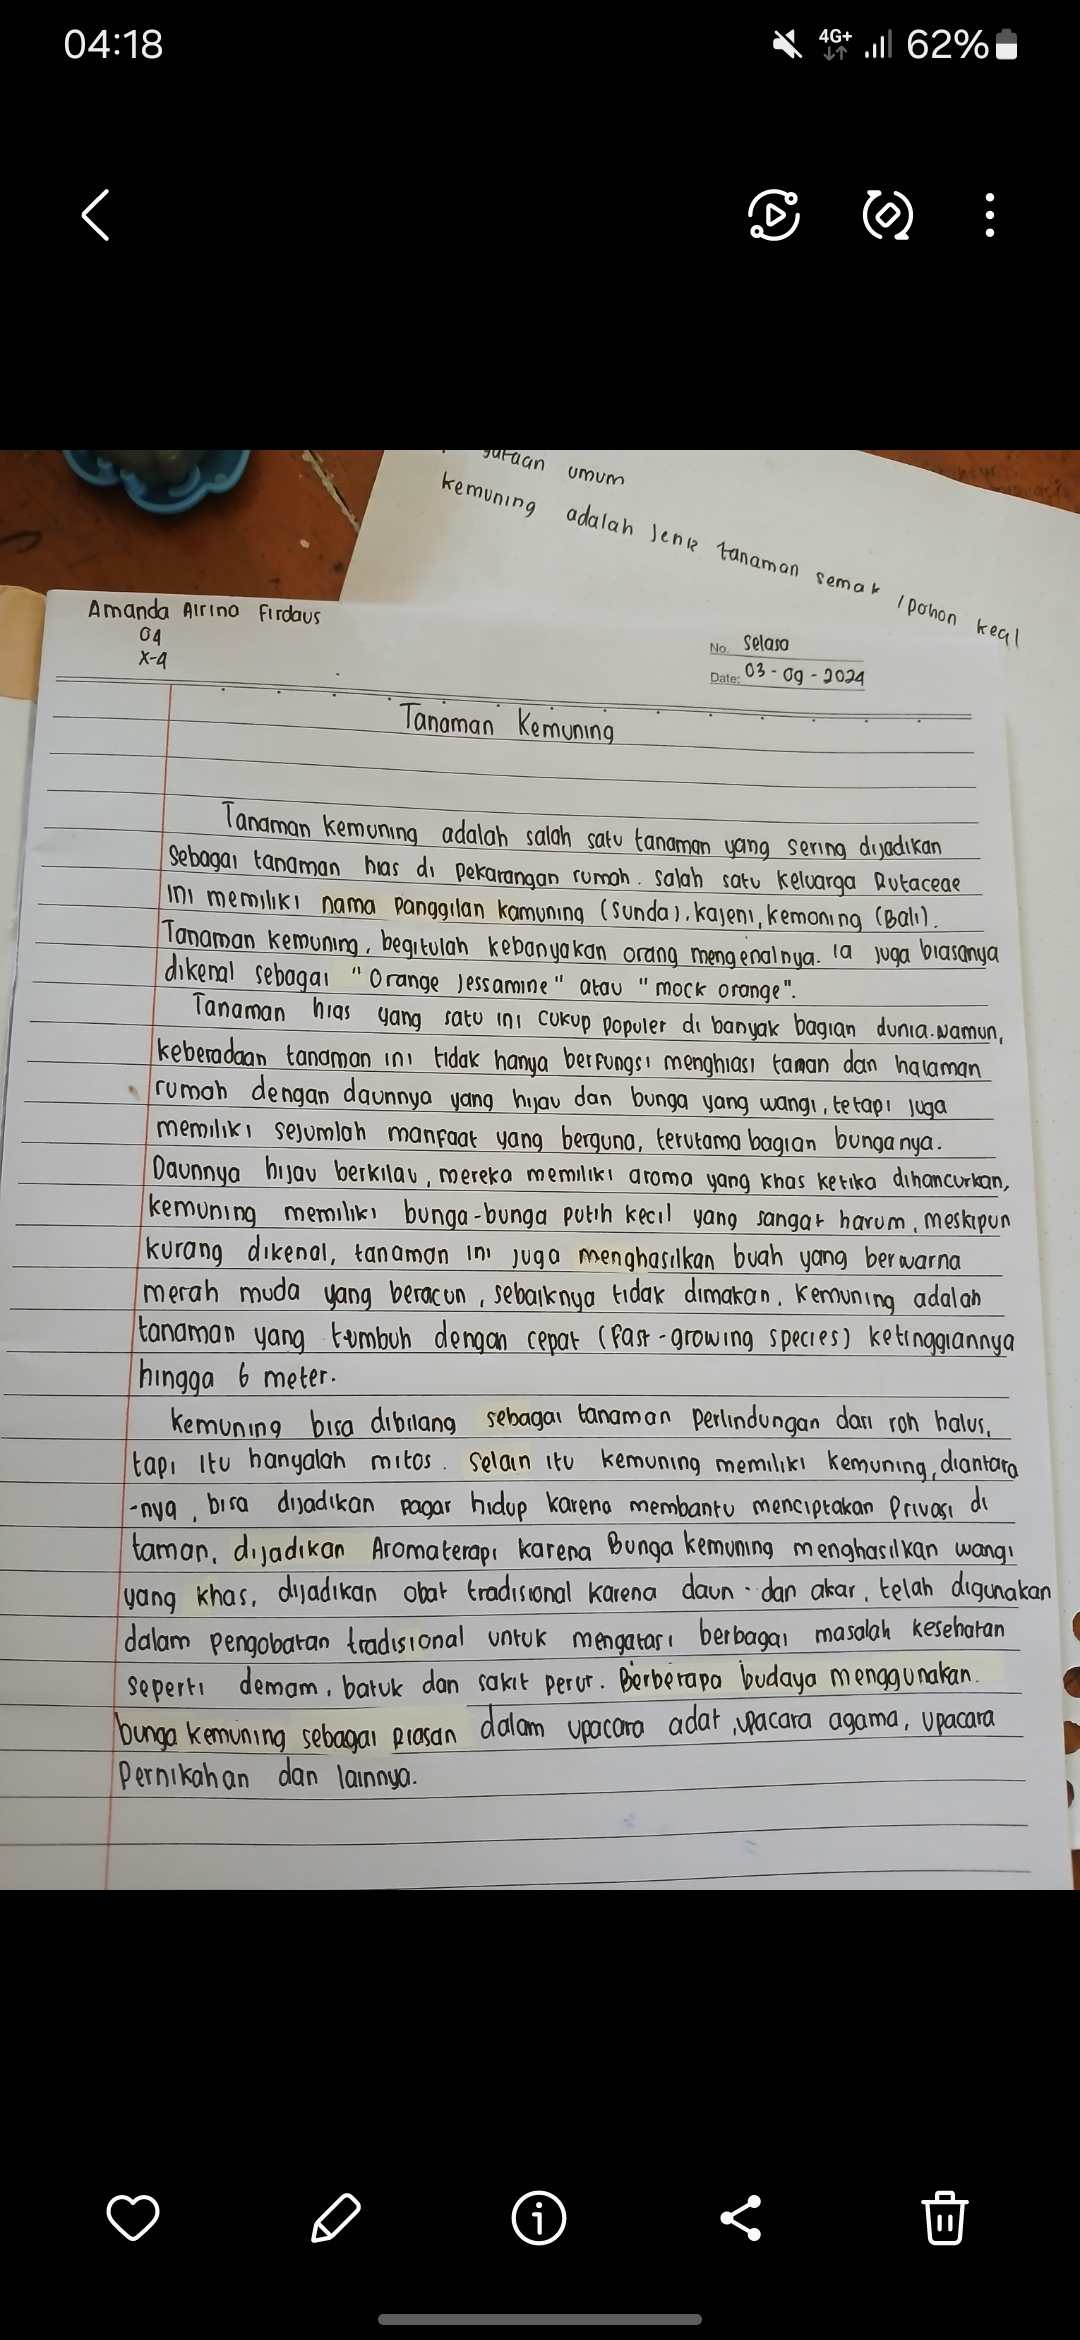 04:18
4G+
62%
umum
kemuning adalah Jenis tanaman semak / pohon kecil
Amanda Airina Firdaus
04
X-4
No. Selasa
Date: 03 - 09 - 2024
Tanaman Kemuning
Tanaman Kemuning adalah salah satu tanaman yang sering dijadikan
Sebagai tanaman hias di pekarangan rumah. Salah satu keluarga Rutaceae
ini memiliki nama panggilan kamuning (Sunda), kajeni, kemoning (Bali).
Tanaman Kemuning, begitulah kebanyakan orang mengenalnya. Ia juga biasanya
dikenal sebagai "Orange Jessamine" atau "mock orange".
Tanaman hias yang satu ini cukup populer di banyak bagian dunia. Namun,
keberadaan tanaman ini tidak hanya berfungsi menghiasi taman dan halaman
rumah dengan daunnya yang hijau dan bunga yang wangi, tetapi juga
memiliki sejumlah manfaat yang berguna, terutama bagian bunganya.
Daunnya hijau berkilau, mereka memiliki aroma yang khas ketika dihancurkan,
kemuning memiliki bunga-bunga putih kecil yang sangat harum, meskipun
kurang dikenal, tanaman ini juga menghasilkan buah yang berwarna
merah muda yang beracun, sebaiknya tidak dimakan. Kemuning adalah
tanaman yang tumbuh dengan cepat (fast-growing species) ketinggiannya
hingga 6 meter.
Kemuning bisa dibilang sebagai tanaman perlindungan dari roh halus,
tapi itu hanyalah mitos. Selain itu kemuning memiliki kemuning, diantara
-nya, bisa dijadikan pagar hidup karena membantu menciptakan Privasi di
taman, dijadikan Aromaterapi karena Bunga kemuning menghasilkan wangi
yang khas, dijadikan obat tradisional karena daun dan akar, telah digunakan
dalam pengobatan tradisional untuk mengatasi berbagai masalah kesehatan
seperti demam, batuk dan sakit perut. Berberapa budaya menggunakan
bunga kemuning sebagai riasan dalam upacara adat, upacara agama, upacara
Pernikahan dan lainnya.